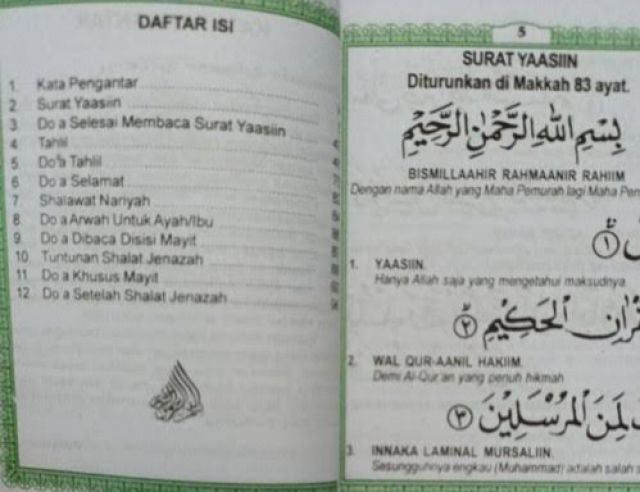 DAFTAR ISI
1. Kata Pengantar
2. Surat Yaasiin
3. Do'a Selesai Membaca Surat Yaasiin
4. Tahlil
5. Do'a Tahlil
6. Do'a Selamat
7. Shalawat Nariyah
8. Do'a Arwah Untuk Ayah/Ibu
9. Do'a Dibaca Disisi Mayit
10. Tuntunan Shalat Jenazah
11. Do'a Khusus Mayit
12. Do'a Setelah Shalat Jenazah
5
SURAT YAASIIN
Diturunkan di Makkah 83 ayat.
بِسْمِ اللهِ الرَّحْمٰنِ الرَّحِيْمِ
BISMILLAAHIR RAHMAANIR RAHIIM
Dengan nama Allah yang Maha Pemurah lagi Maha
١
1. YAASIIN.
Hanya Allah saja yang mengetahui maksudnya
الْحَكِيْمِ ٢
2. WAL QUR-AANIL HAKIIM.
Demi Al-Qur'an yang penuh hikmah
لَمِنَ الْمُرْسَلِيْنَ ٣
3. INNAKA LAMINAL MURSALIIN.
Sesungguhnya engkau (Muhammad) adalah salah